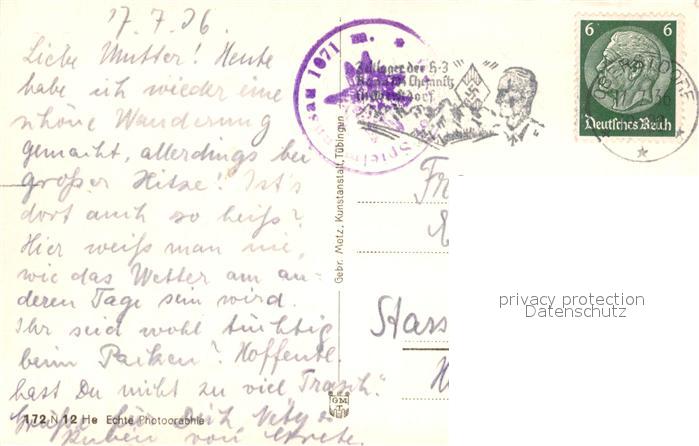 17.7.36.
Liebe Mutter! Heute
habe ich wieder eine
schöne Wanderung
gemacht, allerdings bei
großer Hitze! Ist's
dort auch so heiß?
Hier weiß man nie,
wie das Wetter am an-
deren Tage sein wird.
Ihr seid wohl tüchtig
beim Packen? Hoffentl.
hast Du nicht zu viel
Grüße für Dich
von Grete.
172 N 12 He Echte Photographie
Gebr. Metz, Kunstanstalt, Tübingen
GMT
1071 m.
Zeltlager der H-J
Chemnitz
6 6
Deutsches Reich
Fr
Stass
privacy protection
Datenschutz